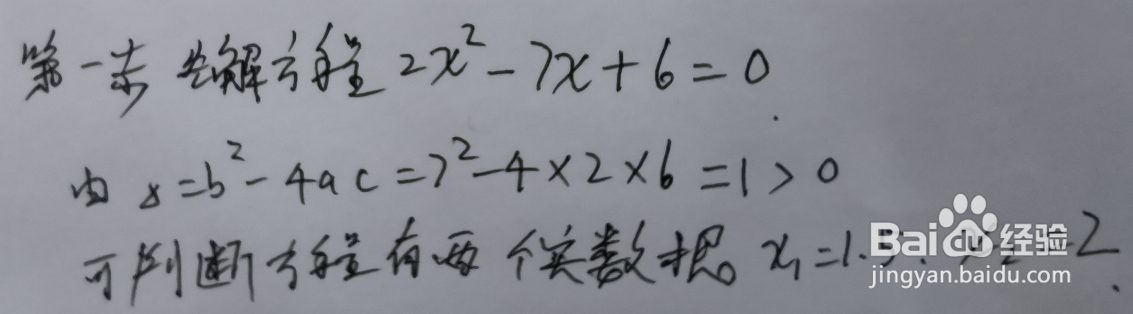 第一步 先解方程 2x²-7x+6=0
由 Δ=b²-4ac=7²-4×2×6=1>0
可判断方程有两个实数根。x₁=1.5. x₂=2.
Bai du 经验
jingyan.baidu.com